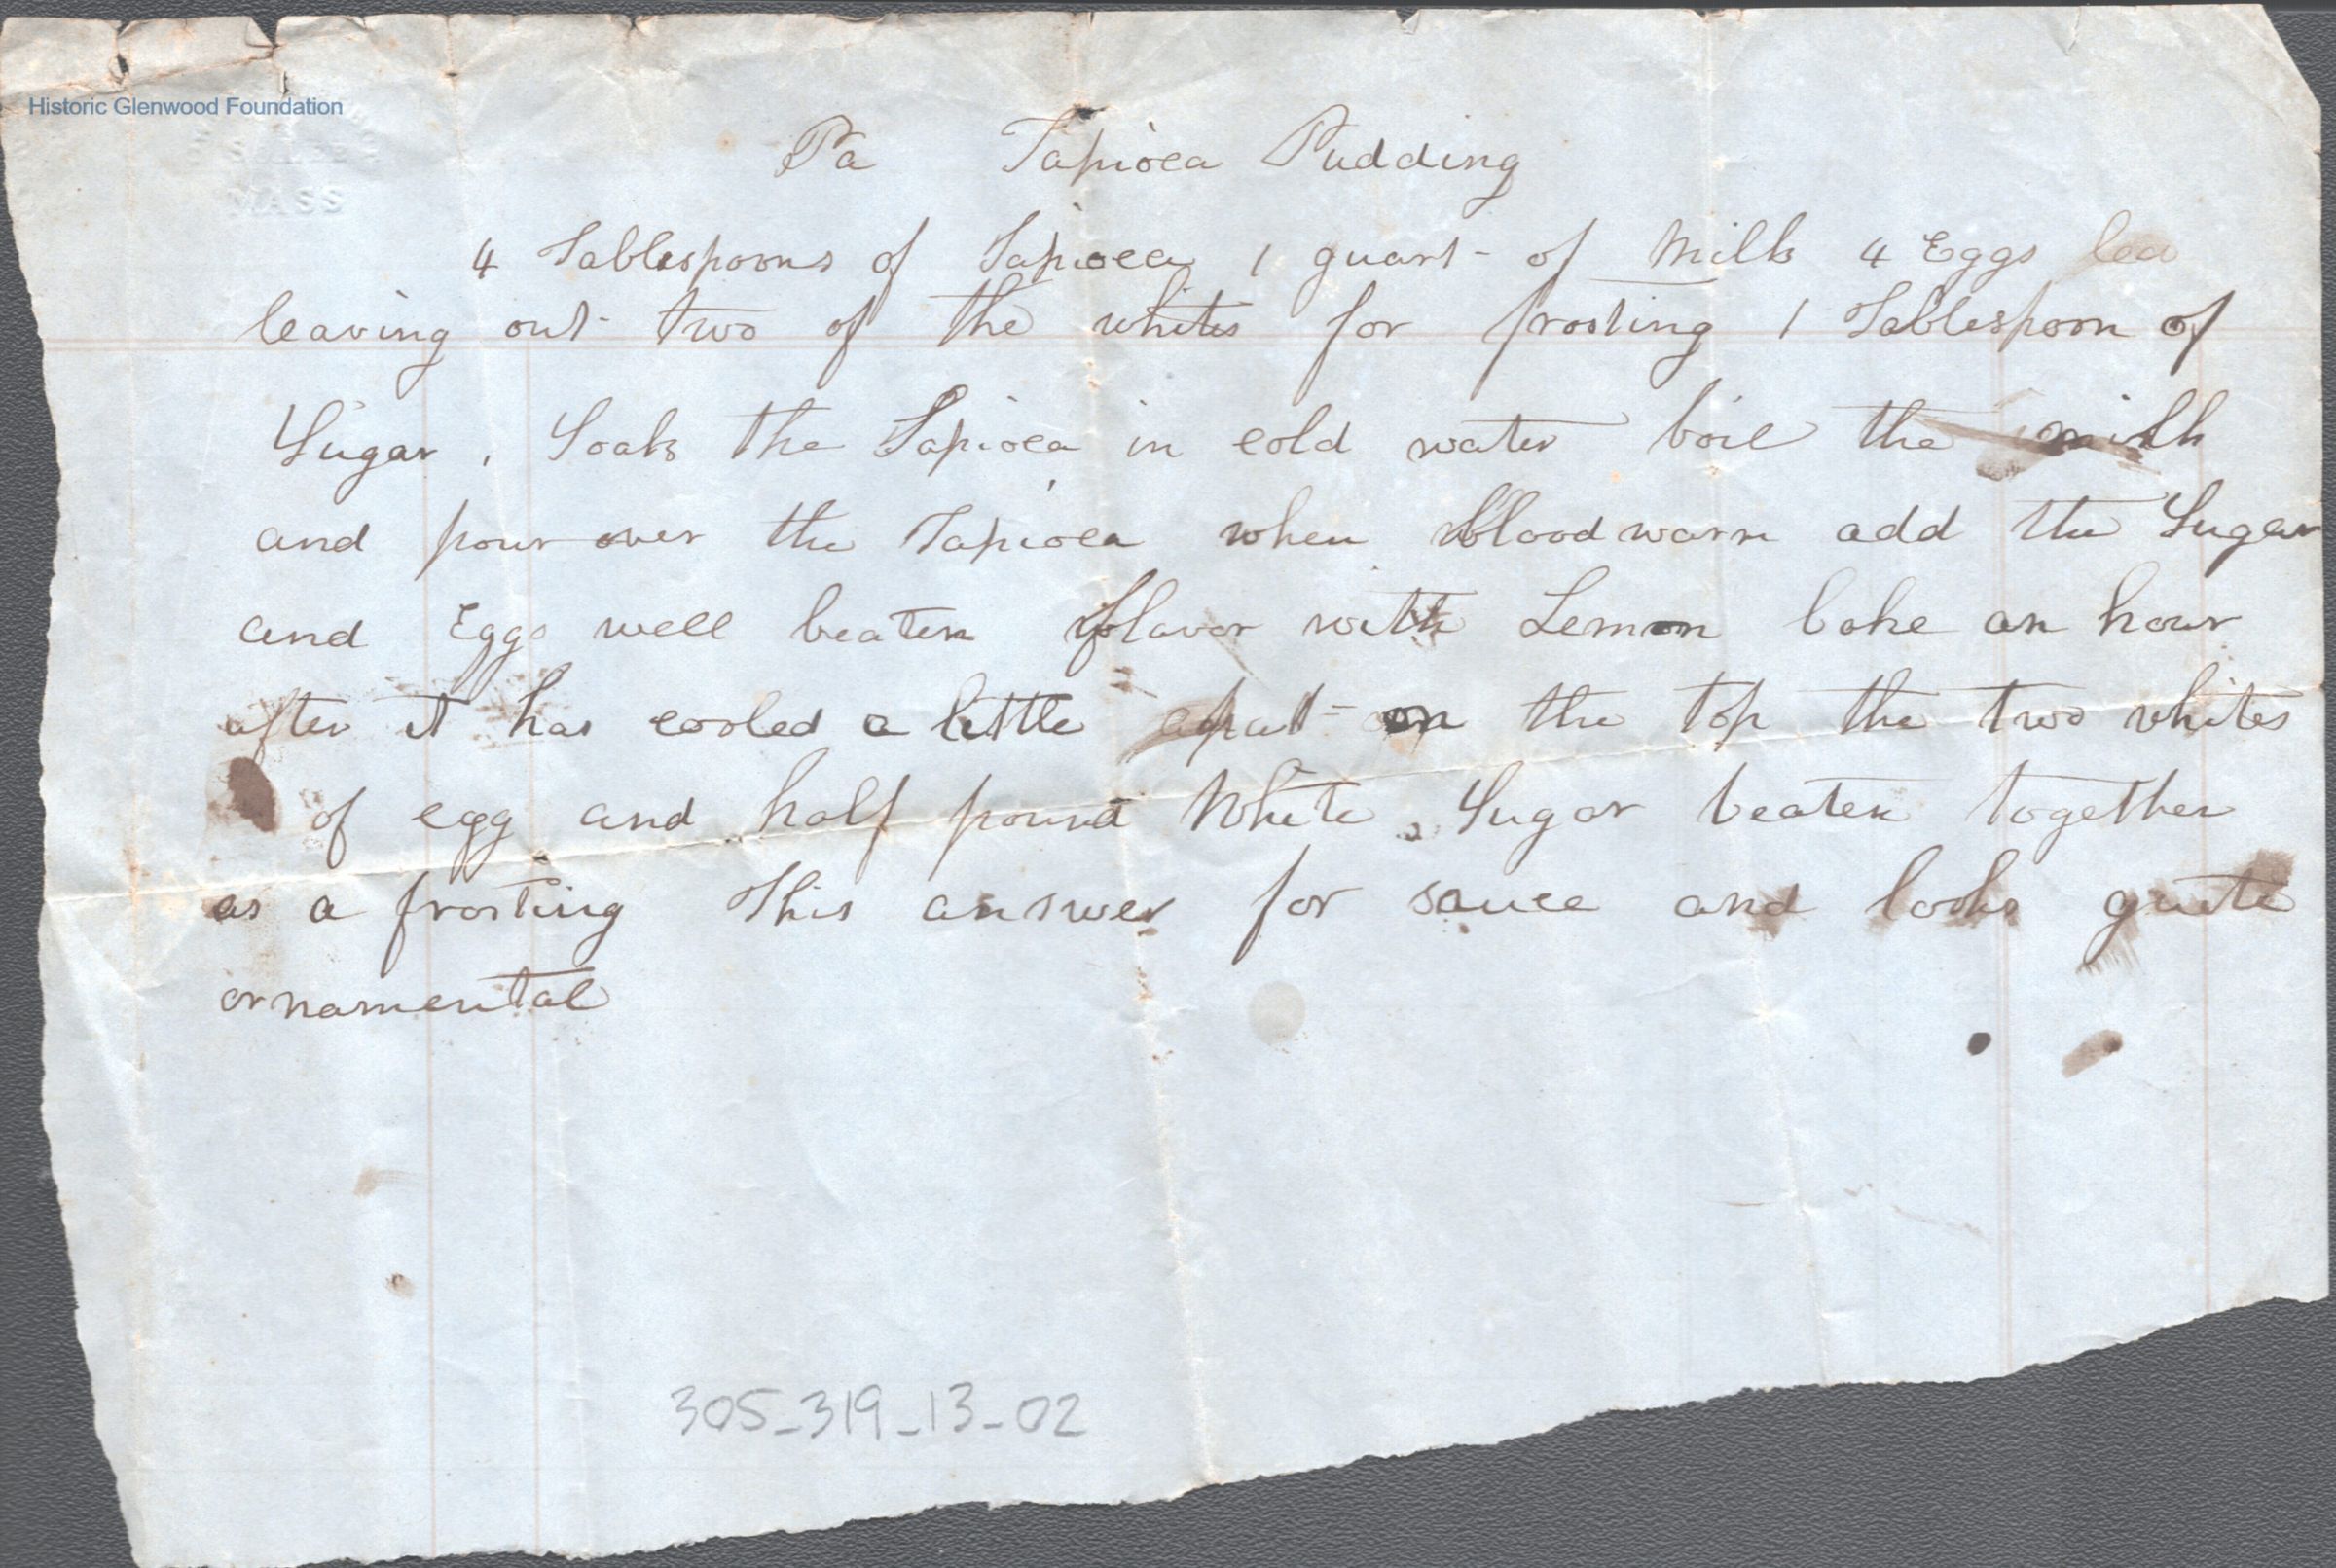 Historic Glenwood Foundation
MASS
Pa Tapioca Pudding
4 Tablespoons of Tapioca 1 quart of Milk 4 Eggs lea
leaving out two of the whites for frosting 1 Tablespoon of
Sugar , Soak the Tapioca in cold water boil the milk
and pour over the Tapioca when bloodwarm add the Sugar
and Eggs well beaten flavor with Lemon bake an hour
after it has cooled a little put on the top the two whites
of egg and half pound White Sugar beaten together
as a frosting This answer for sauce and looks quite
ornamental
305_319_13_02